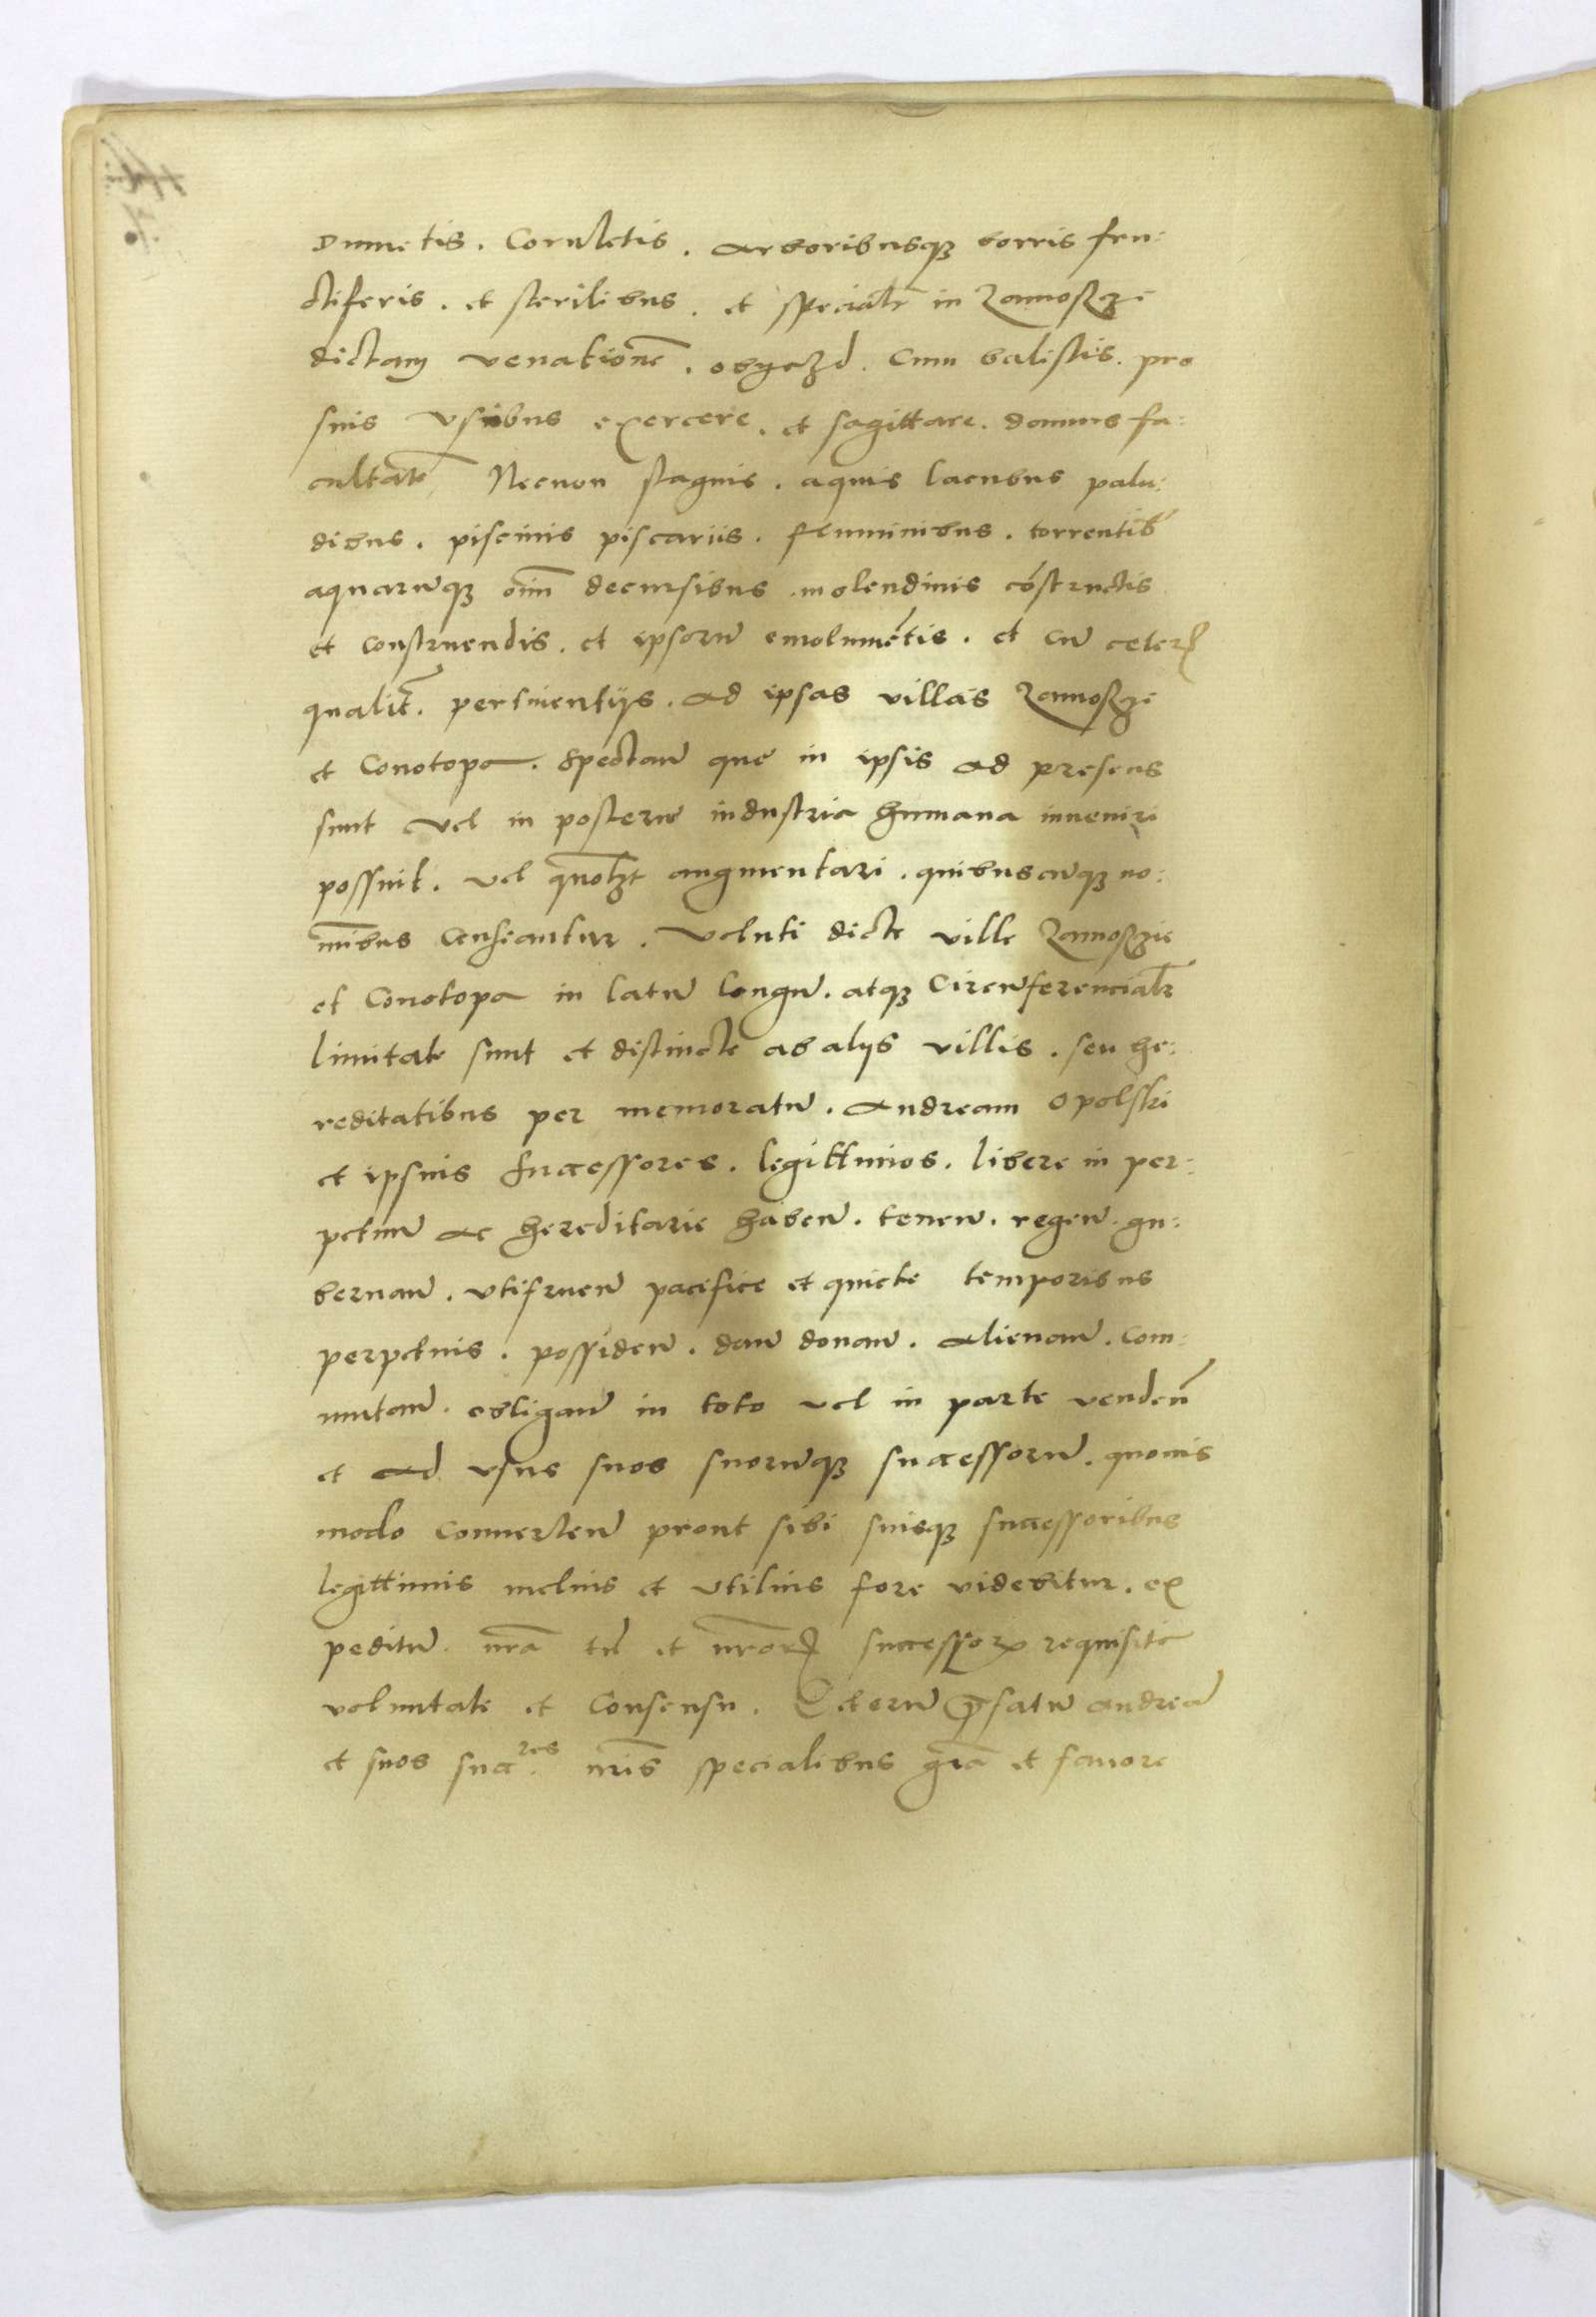 Dumetis . Coruletis . Arboribusqȝ borris fru:
ctiferis . et sterilibus . et specialr̄ in Zamoszcze
dictam venationē . obyazd . Cum balistis . pro
suis vsibus exercere . et sagittare . damus fa:
cultatē Necnon stagnis . aquis lacubus palu:
dibus . piscinis piscariis . fluminibus . torrentib9
aquarūqȝ oīm decursibus . molendinis cōstructis
et construendis . et ipsorū emolumētis . et cū ceteꝝ
qualit̄ . pertinentijs . ad ipsas villas Zamoszcze
et Conotopa . Spectan̄ que in ipsis ad presens
sunt vel in posterū industria humana inueniri
possunt . vel quōlȝt augmentari . quibuscūqȝ no:
mībus censeantur . Veluti dicte ville Zamoszcie
et Conotopa in latū longū . atqȝ Circūferencialr̄
limitate sunt et distincte ab alijs villis . seu he:
reditatibus per memoratū . Andream Opolski
et ipsius successores . legittimos . libere in per:
petuū ac hereditarie haben̄ . tenen̄ . regen̄ . gu:
bernan̄ . vtifruen̄ pacifice et quiete temporibus
perpetuis . possiden̄ . dan̄ donan̄ . alienan̄ . Com:
mutan̄ . obligan̄ in toto vel in parte venden̄
et ad vsus suos suorūqȝ successorū . quouis
modo conuerten̄ prout sibi suisqȝ successoribus
legittimis melius et vtilius fore videbitur . ex
peditū . nr̄a tn̄ et nr̄oꝝ successoꝝ requisita
voluntate et Consensu . Ceterū p̄fatū andreā
et suos succ.res nr̄is specialibus gr̄a et fauore